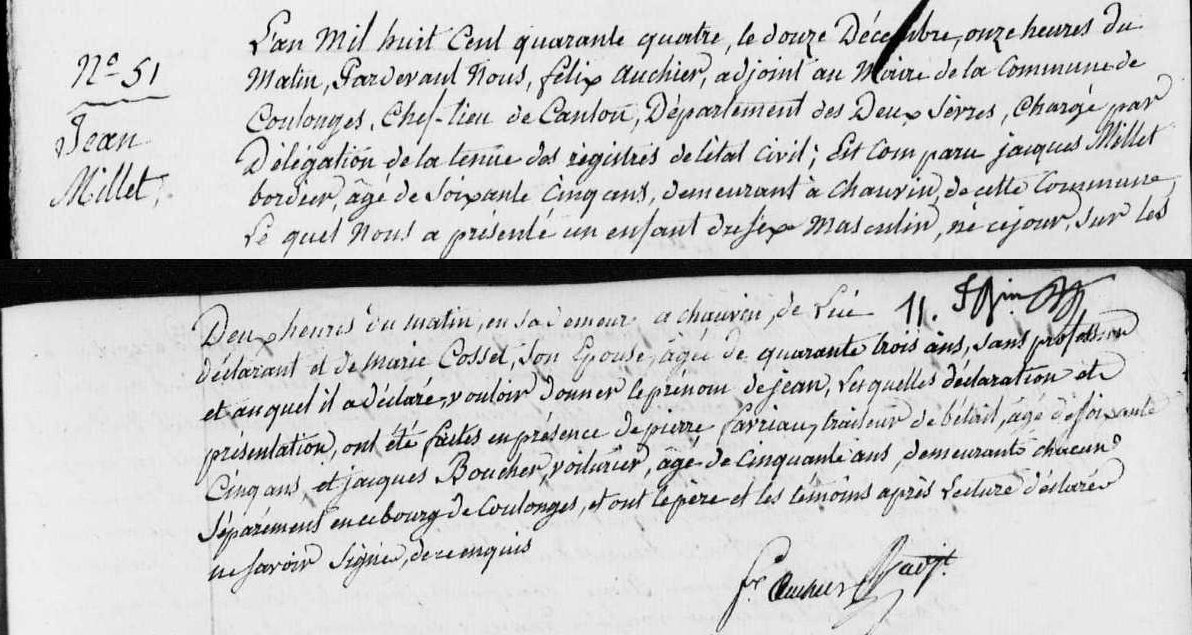 N° 51
Jean
Millet.
L'an Mil huit Cent quarante quatre, le douze Décembre, onze heures du
Matin, Pardevant Nous, félix Auchier, adjoint au Maire de la Commune de
Coulonges, Chef-lieu de Canton, Département des Deux Sèvres, Chargé par
Délégation de la tenue des registres de l'état Civil; Est Comparu jacques Millet
bordier, âgé de soixante Cinq ans, demeurant à chauvin, de cette Commune,
Le quel Nous a présenté un enfant du sexe Masculin, né cejour, sur les
Deux heures du matin, en sa demeure a chauvin, de Lui
déclarant et de Marie Cosset, Son Epouse, âgée de quarante trois ans, sans profession
et auquel il a déclaré, vouloir Donner le prénom de jean, Lesquelles déclaration et
présentation, ont été faites en présence de pierre favriau, traiteur de bétail, âgé de soixante
Cinq ans, et jacques Boucher, voiturier, âgé de Cinquante ans, demeurants chacun
Séparément en ce bourg de Coulonges, et ont le père et les témoins après Lecture déclarés
ne savoir Signer, de ce enquis
fx Auchier adjt.